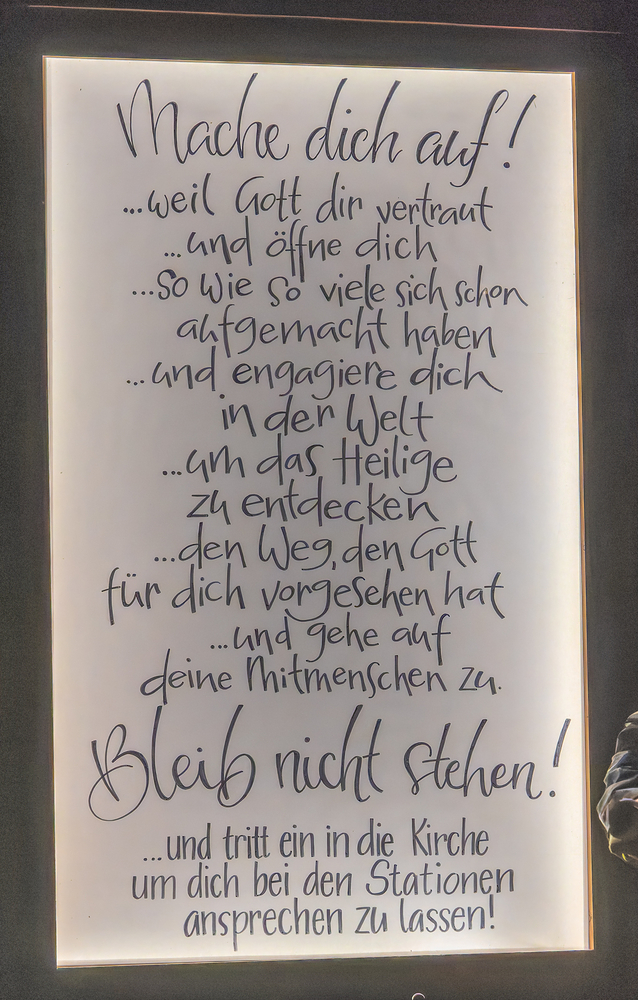 Mache dich auf!
...weil Gott dir vertraut
...und öffne dich
...so wie so viele sich schon
aufgemacht haben
...und engagiere dich
in der Welt
...um das Heilige
zu entdecken
...den Weg, den Gott
für dich vorgesehen hat
...und gehe auf
deine Mitmenschen zu.
Bleib nicht stehen!
...und tritt ein in die Kirche
um dich bei den Stationen
ansprechen zu lassen!